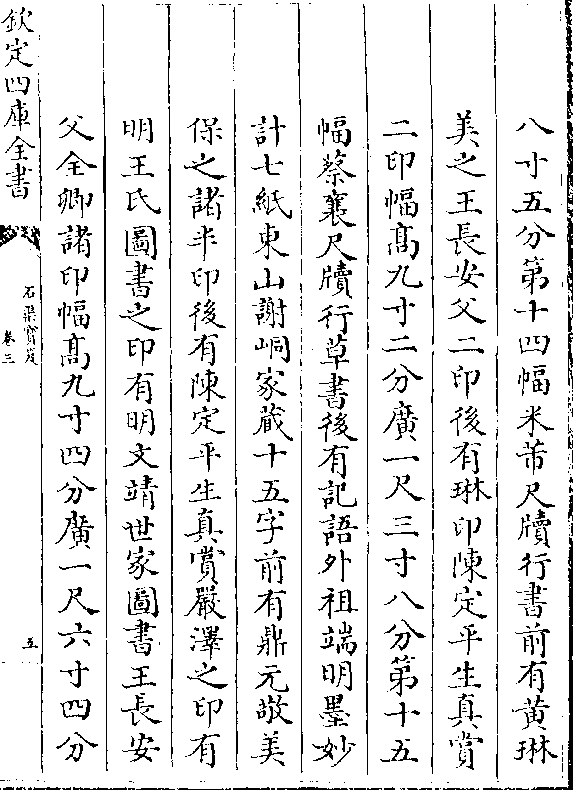 八寸五分第十四幅米芾尺牘行書前有黄琳
美之王長安父二印後有琳印陳定平生真賞
二印幅髙九寸二分廣一尺三寸八分第十五
幅蔡襄尺牘行草書後有記語外祖端明墨妙
計七紙東山謝峒家蔵十五字前有鼎元敬美
保之諸半印後有陳定平生真賞嚴澤之印有
明王氏圖書之印有明文靖世家圖書王長安
父全卿諸印幅髙九寸四分廣一尺六寸四分
欽定四庫全書
石渠寶笈
卷三
五